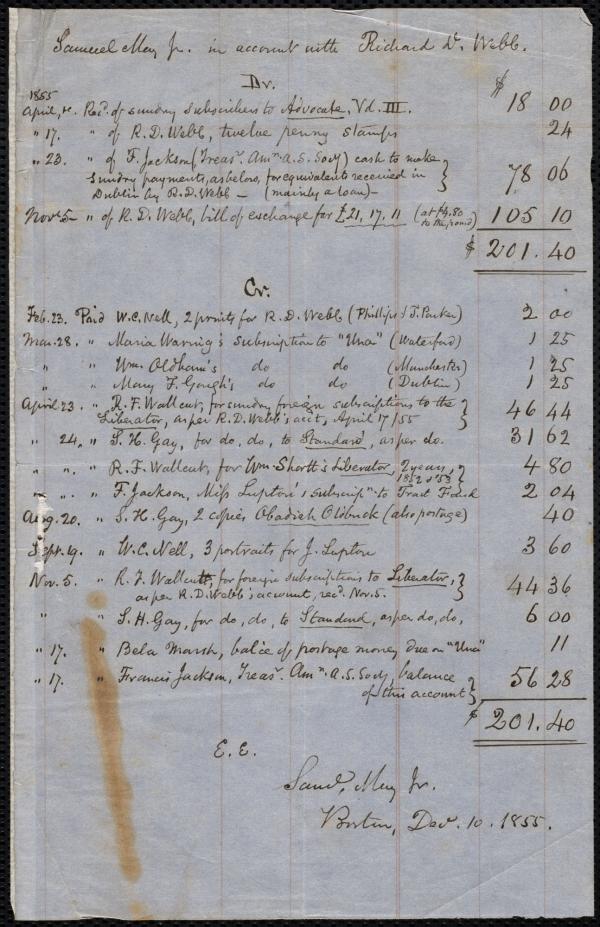 Samuel May Jr. in account with Richard D. Webb.
Dr.
1855
April, 4. Rec.d of sundry subscribers to Advocate, Vol. III. $ 18 00
" 17. " of R. D. Webb, twelve penny stamps 24
" 23. " of F. Jackson (Treasr. Amn. A. S. Socy) cash to make
sundry payments, as below, for equivalents received in } 78 06
Dublin by R. D. Webb — (mainly a loan) —
Nov. 5 — " of R. D. Webb, bill of exchange for £21, 17, 11 (at $4.80 to the pound) 105 10
$ 201.40
Cr.
Feb. 23. Paid W. C. Nell, 2 prints for R. D. Webb (Phillips & T. Parker) 2 00
Mar. 28. " Maria Waring's subscription to "Una" (Waterford) 1 25
" " Wm. Oldham's do do (Manchester) 1 25
" " Mary F. Gough's do do (Dublin) 1 25
April 23 " R. F. Wallcut, for sundry foreign subscriptions to the }
Liberator, as per R. D. Webb's acct, April 17/55 46 44
" 24, " S. H. Gay, for do, do, to Standard, as per do. 31 62
" " " R. F. Wallcut, for Wm. Shortt's Liberator, 2 years, } 4 80
1852 & 53
" " " F. Jackson, Miss Lupton's subscripn. to Tract Fund 2 04
Aug. 20. " S. H. Gay, 2 copies Obadiah Oldbuck (also postage) 40
Sept. 19. " W. C. Nell, 3 portraits for J. Lupton 3 60
Nov. 5. " R. F. Wallcutt, for foreign subscriptions to Liberator, } 44 36
as per R. D. Webb's account, recd. Nov. 5.
" " S. H. Gay, for do, do, to Standard, as per do, do, 6 00
" 17. " Bela Marsh, balce of postage money due on "Una" 11
" 17. " Francis Jackson, Treasr. Amn. A. S. Socy, balance } 56 28
of this account
$ 201.40
E. E.
Saml. May Jr.
Boston, Dec. 10. 1855.